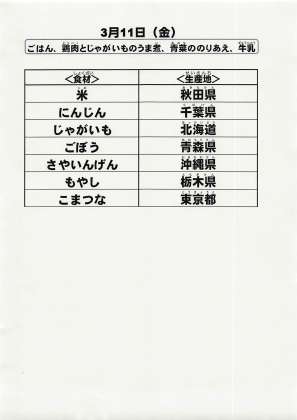 3月11日（金）
ごはん、鶏肉とじゃがいものうま煮、青菜ののりあえ、牛乳
＜食材＞ ＜生産地＞
米 秋田県
にんじん 千葉県
じゃがいも 北海道
ごぼう 青森県
さやいんげん 沖縄県
もやし 栃木県
こまつな 東京都